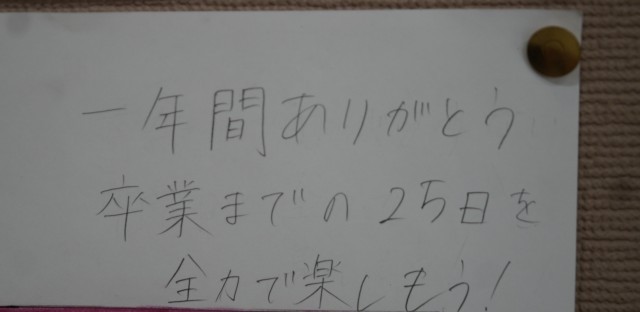 一年間ありがとう
卒業までの25日を
全力で楽しもう!